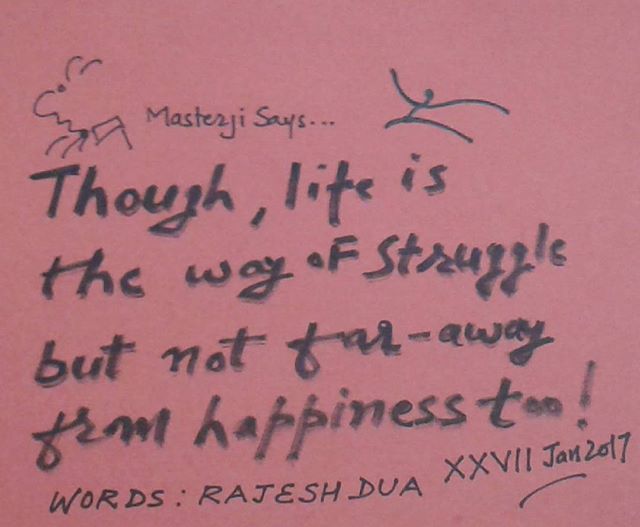 Masterji Says...
Though, life is
the way of Struggle
but not far-away
from happiness too!
WORDS : RAJESH DUA XXVII Jan 2017